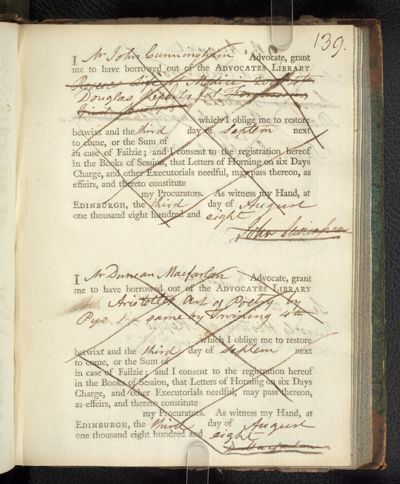 139.
I Mr John Cunningham Advocate, grant
me to have borrowed out of the ADVOCATES LIBRARY
Douglas Reports
which I oblige me to restore
betwixt and the third day of Septem next
to come, or the Sum of
in case of Failzie; and I consent to the registration hereof
in the Books of Session, that Letters of Horning on six Days
Charge, and other Executorials needful, may pass thereon, as
effeirs, and thereto constitute
my Procurators. As witness my Hand, at
EDINBURGH, the third day of August
one thousand eight hundred and eight
John
I Mr Duncan Macfarlan Advocate, grant
me to have borrowed out of the ADVOCATES LIBRARY
Aristotles Art of Poetry by
Pye. same by Twining 4to
which I oblige me to restore
betwixt and the third day of Septem next
to come, or the Sum of
in case of Failzie; and I consent to the registration hereof
in the Books of Session, that Letters of Horning on six Days
Charge, and other Executorials needful, may pass thereon,
as effeirs, and thereto constitute
my Procurators. As witness my Hand, at
EDINBURGH, the third day of August
one thousand eight hundred and eight
D Macfarlan